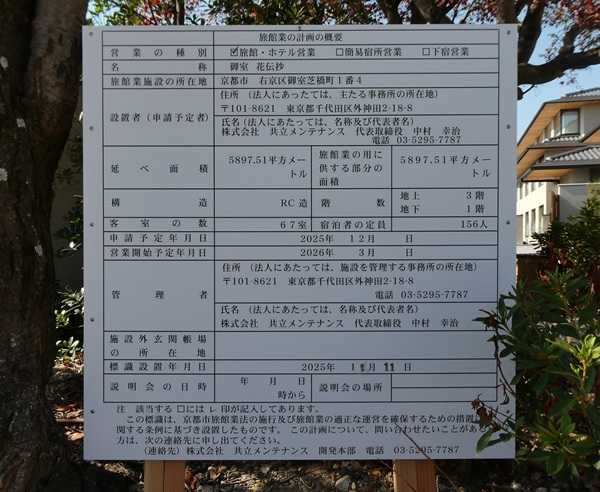 旅館業の計画の概要
営業の種別 ☑旅館・ホテル営業 □簡易宿所営業 □下宿営業
名称 御室 花伝抄
旅館業施設の所在地 京都市 右京区御室芝橋町1番4
設置者(申請予定者) 住所 (法人にあったては、主たる事務所の所在地)
〒101-8621 東京都千代田区外神田2-18-8
氏名(法人にあたっては、名称及び代表者名)
株式会社 共立メンテナンス 代表取締役 中村 幸治
電話 03-5295-7787
延べ面積 5897.51平方メートル 旅館業の用に供する部分の面積 5897.51平方メートル
構造 RC造 階数 地上 3階
地下 1階
客室の数 67室 宿泊者の定員 156人
申請予定年月日 2025年 12月 日
営業開始予定年月日 2026年 3月 日
管理者 住所 (法人にあたっては、施設を管理する事務所の所在地)
〒101-8621 東京都千代田区外神田2-18-8
電話 03-5295-7787
氏名 (法人にあたっては、名称及び代表者名)
株式会社 共立メンテナンス 代表取締役 中村 幸治
施設外玄関帳場の所在地
標識設置年月日 2025年 11月 11日
説明会の日時 年 月 日
時から 説明会の場所
注 該当する □には レ 印が記入してあります。
この標識は、京都市旅館業法の施行及び旅館業の適正な運営を確保するための措置
関する条例に基づき設置したものです。 この計画について、問い合わせたいことがあ
方は、次の連絡先に申し出てください。
(連絡先)株式会社 共立メンテナンス 開発本部 電話 03-5295-7787